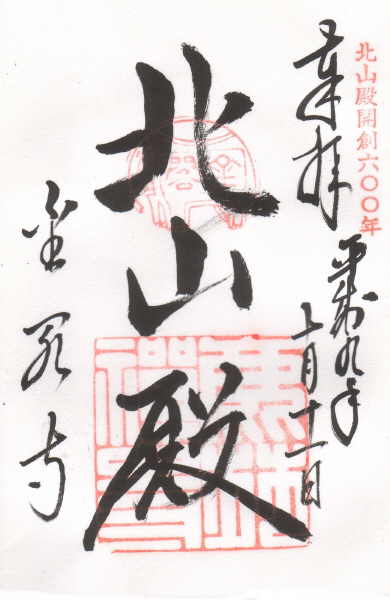 北山殿開創六〇〇年
奉拝
平成九年
十月十一日
北山殿
金閣寺